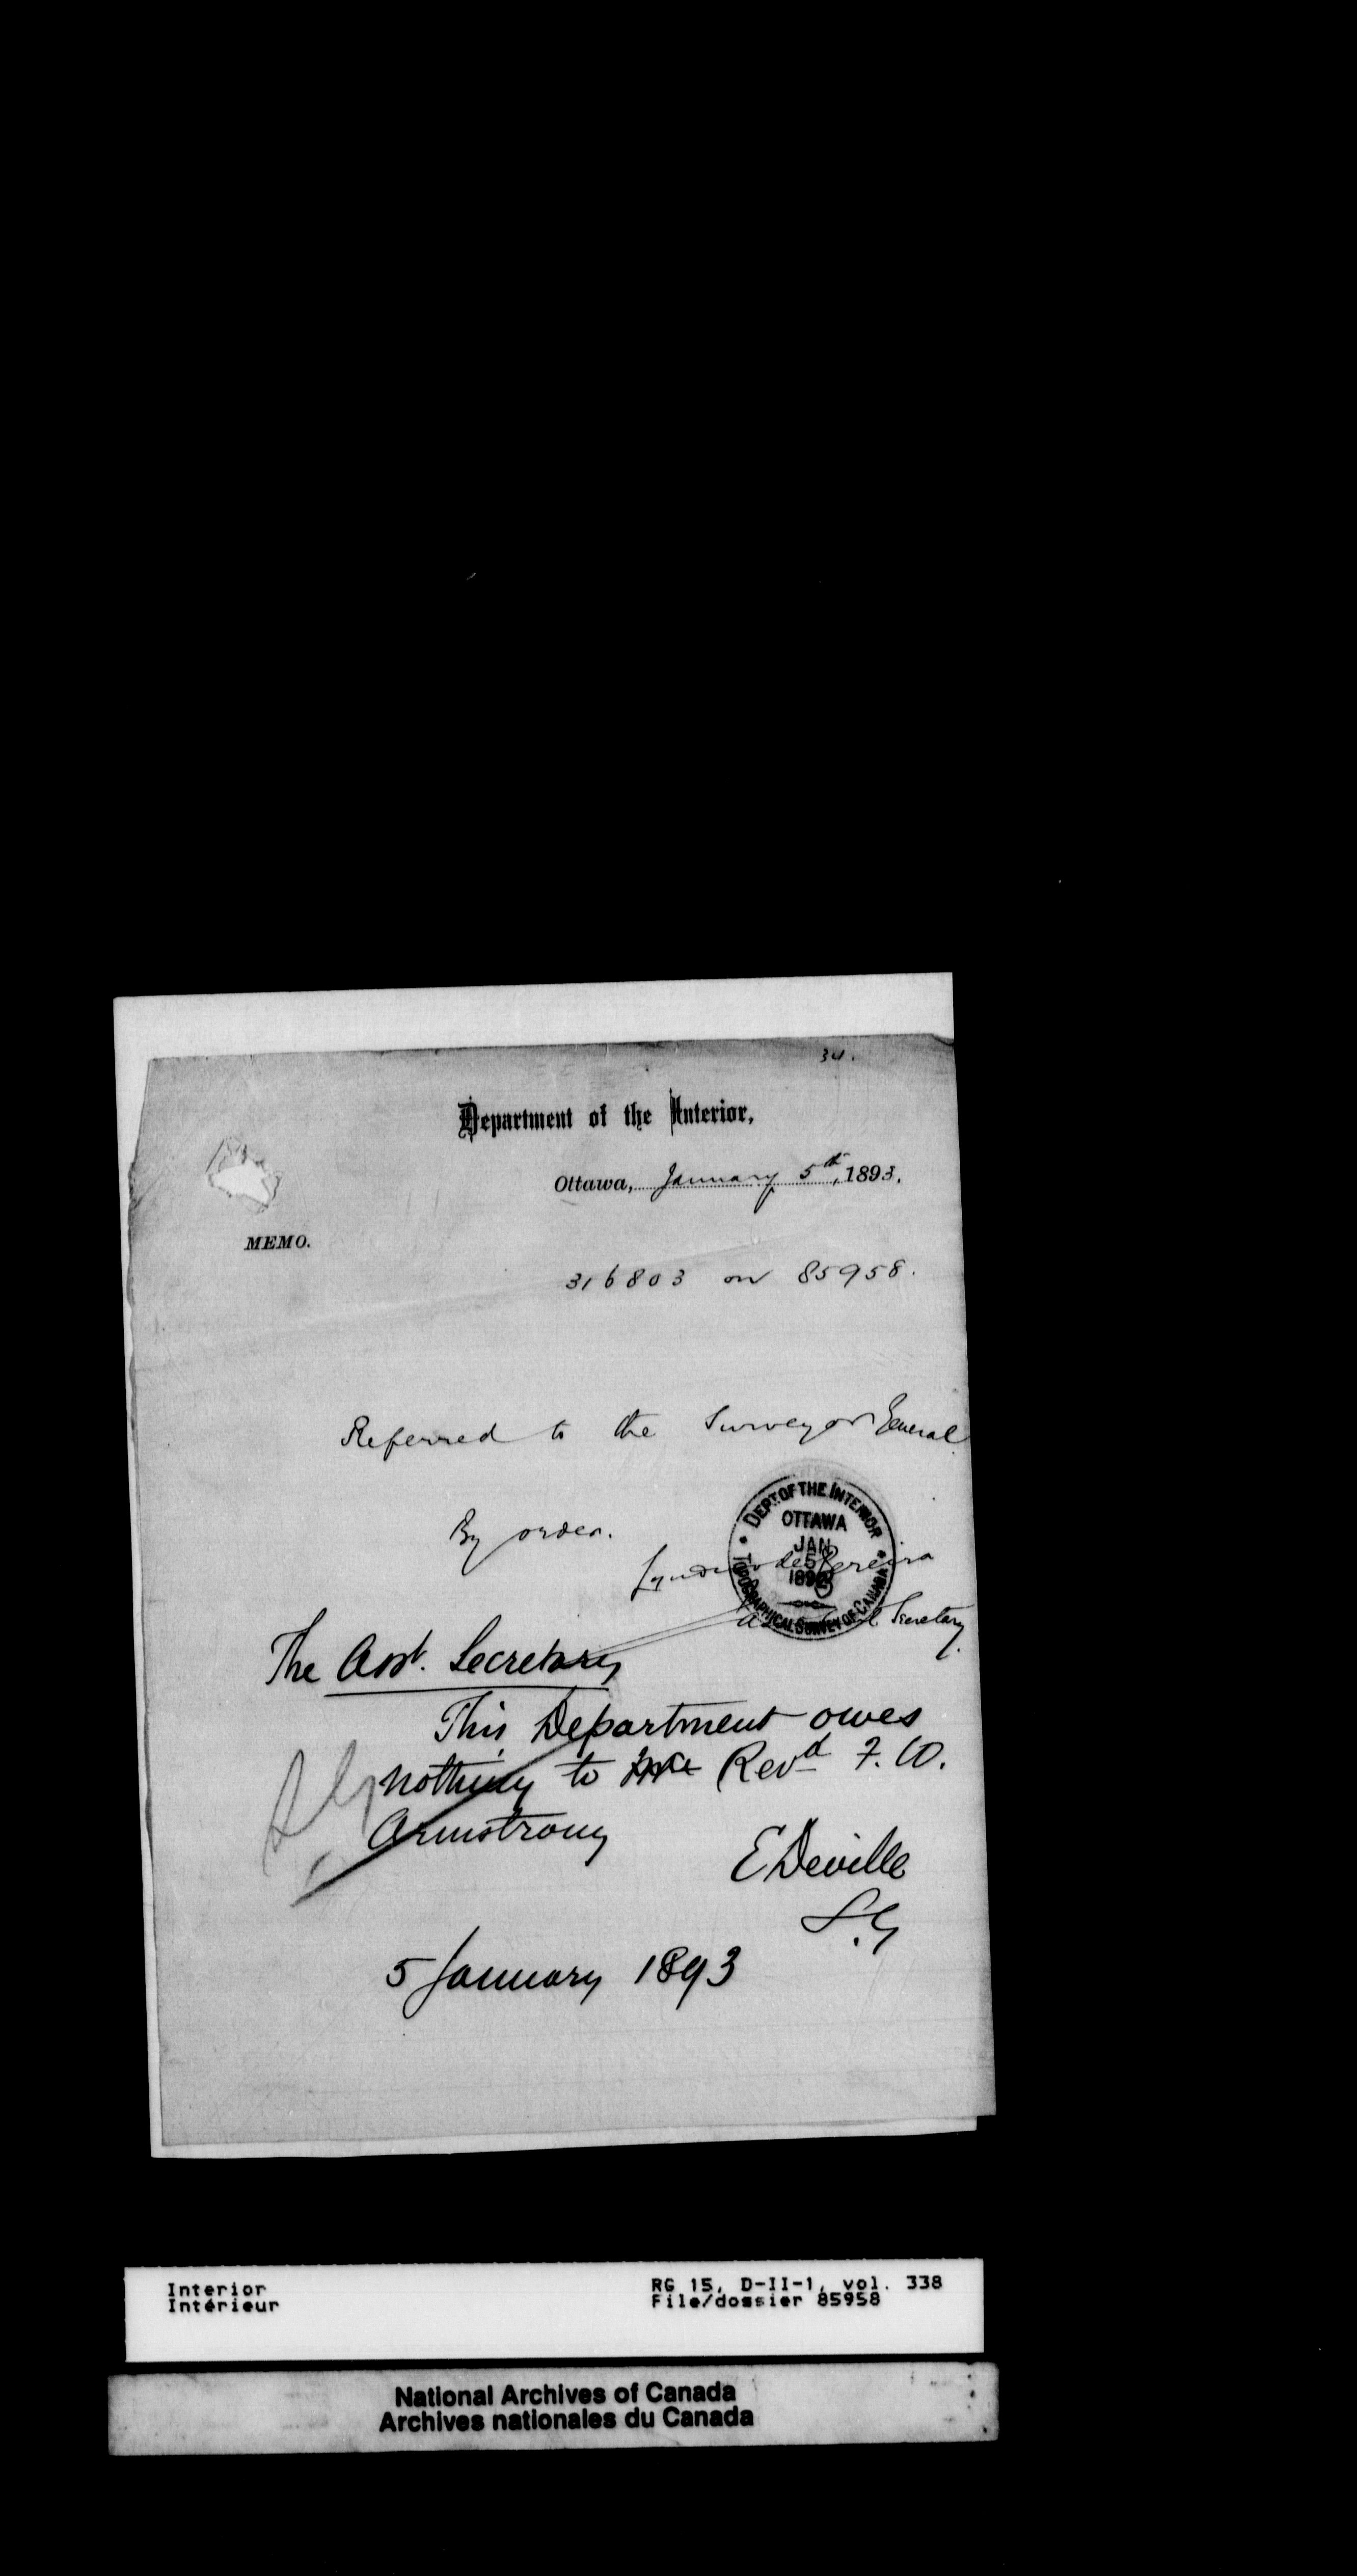 34.
Department of the Interior,
Ottawa, January 5th, 1893.
MEMO.
316803 on 85958.
Referred to the Surveyor General
By order.
Lyndwode Pereira
Assistant Secretary.
DEPT. OF THE INTERIOR
OTTAWA
JAN
5
1893
TOPOGRAPHICAL SURVEY OF CANADA
The Asst. Secretary
This Department owes
nothing to Revd F. W.
Armstrong
E Deville
S.G
5 January 1893
Interior
Intérieur
RG 15, D-II-1, vol. 338
File/dossier 85958
National Archives of Canada
Archives nationales du Canada